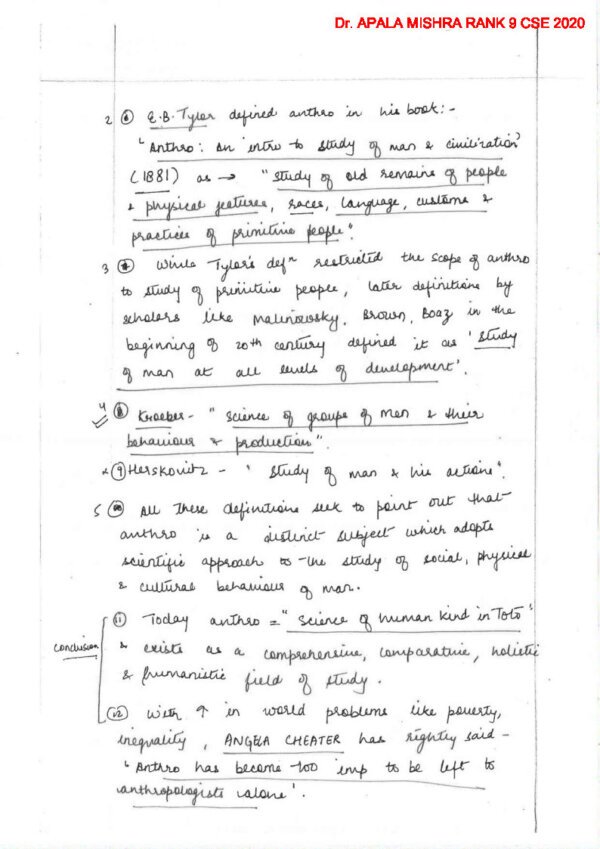 Dr. APALA MISHRA RANK 9 CSE 2020
2 E.B. Tylor defined anthro in his book:-
'Anthro: An intro to study of man & civilization'
(1881) as → "study of old remains of people
& physical features, races, language, customs &
practices of primitive people".
3 While Tylor's defn restricted the scope of anthro
to study of primitive people, later definitions by
scholars like Malinowsky, Brown, Boaz in the
beginning of 20th century defined it as 'study
of man at all levels of development'.
4 Kroeber- "science of groups of men & their
behaviour & production".
(9) Herskovitz - 'study of man & his actions'.
5 (10) All these definitions seek to point out that
anthro is a distinct subject which adopts
scientific approach to the study of social, physical
& cultural behaviour of man.
(11) Today anthro = "science of human kind in Toto"
conclusion & exists as a comprehensive, comparative, holistic
& humanistic field of study.
(12) With ↑ in world problems like poverty,
inequality, ANGELA CHEATER has rightly said -
'Anthro has become too imp to be left to
anthropologists alone'.